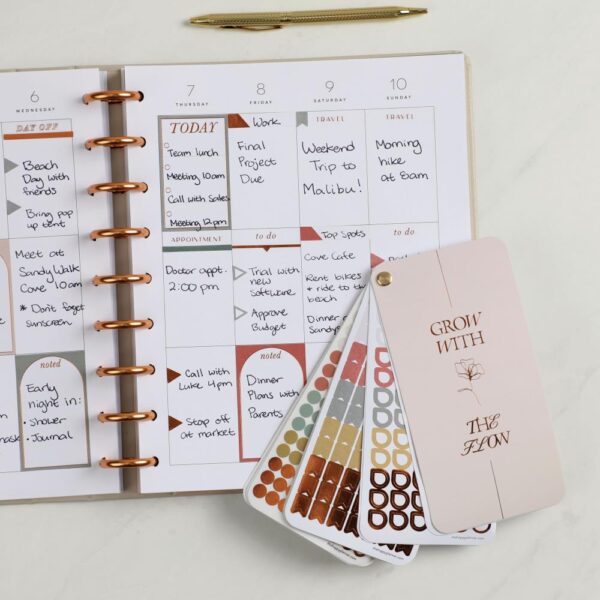 6
WEDNESDAY
DAY OFF
Beach
Day with
friends
Bring pop
up tent
Meet at
Sandy Walk
Cove 10am
* Don't forget
sunscreen
noted
Early
night in:
· Shower
· Journal
7
THURSDAY
TODAY
Team lunch
Meeting 10am
Call with Sales
Meeting 12pm
APPOINTMENT
Doctor appt.
2:00 pm
Call with
Luke 4pm
Stop off
at market
8
FRIDAY
Work
Final
Project
Due
to do
Trial with
new
Software
Approve
Budget
noted
Dinner
Plans with
Parents
9
SATURDAY
TRAVEL
Weekend
Trip to
Malibu!
Top Spots
Cove Cafe
Rent bikes
+ ride to the
beach
Dinner
10
SUNDAY
TRAVEL
Morning
hike
at 8am
to do
GROW
WITH
THE
FLOW